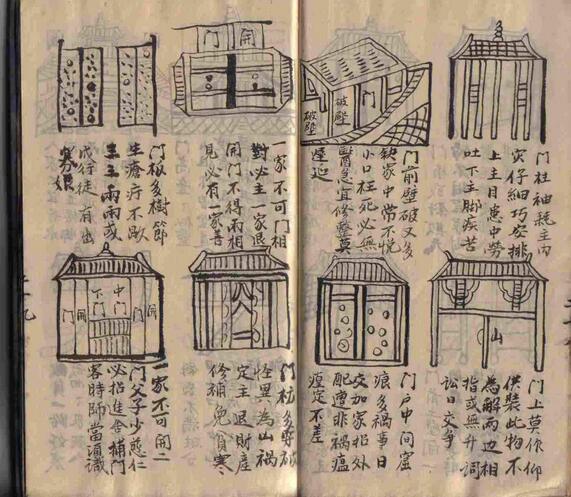 门柱補疏主内
灾仔細巧安排
上主目患中勞
吐下主脚疾苦
破壁
破壁
门
门前壁破又多
缺家中常不悦
小口枉死必無
醫急宜修整莫
遲延
门
開
一家不可門相
對必主一家退
開门不得兩相
見必有一家善
门板多樹節
生瘡疔不歇
三三兩兩或
成行徒有出
山
门上莫作仰
供裝此物不
為解两边相
指或無升詞
訟日交爭
门户中间窟
痕多禍事日
交加家招外
配遭非禍瘟
定不差
门板多穿破
怪異為山禍
定主退財產
修補免貧寒
门
下门
中门
门
開
一家不可開二
门父子少慈仁
必招進舍補门
客時師當通識